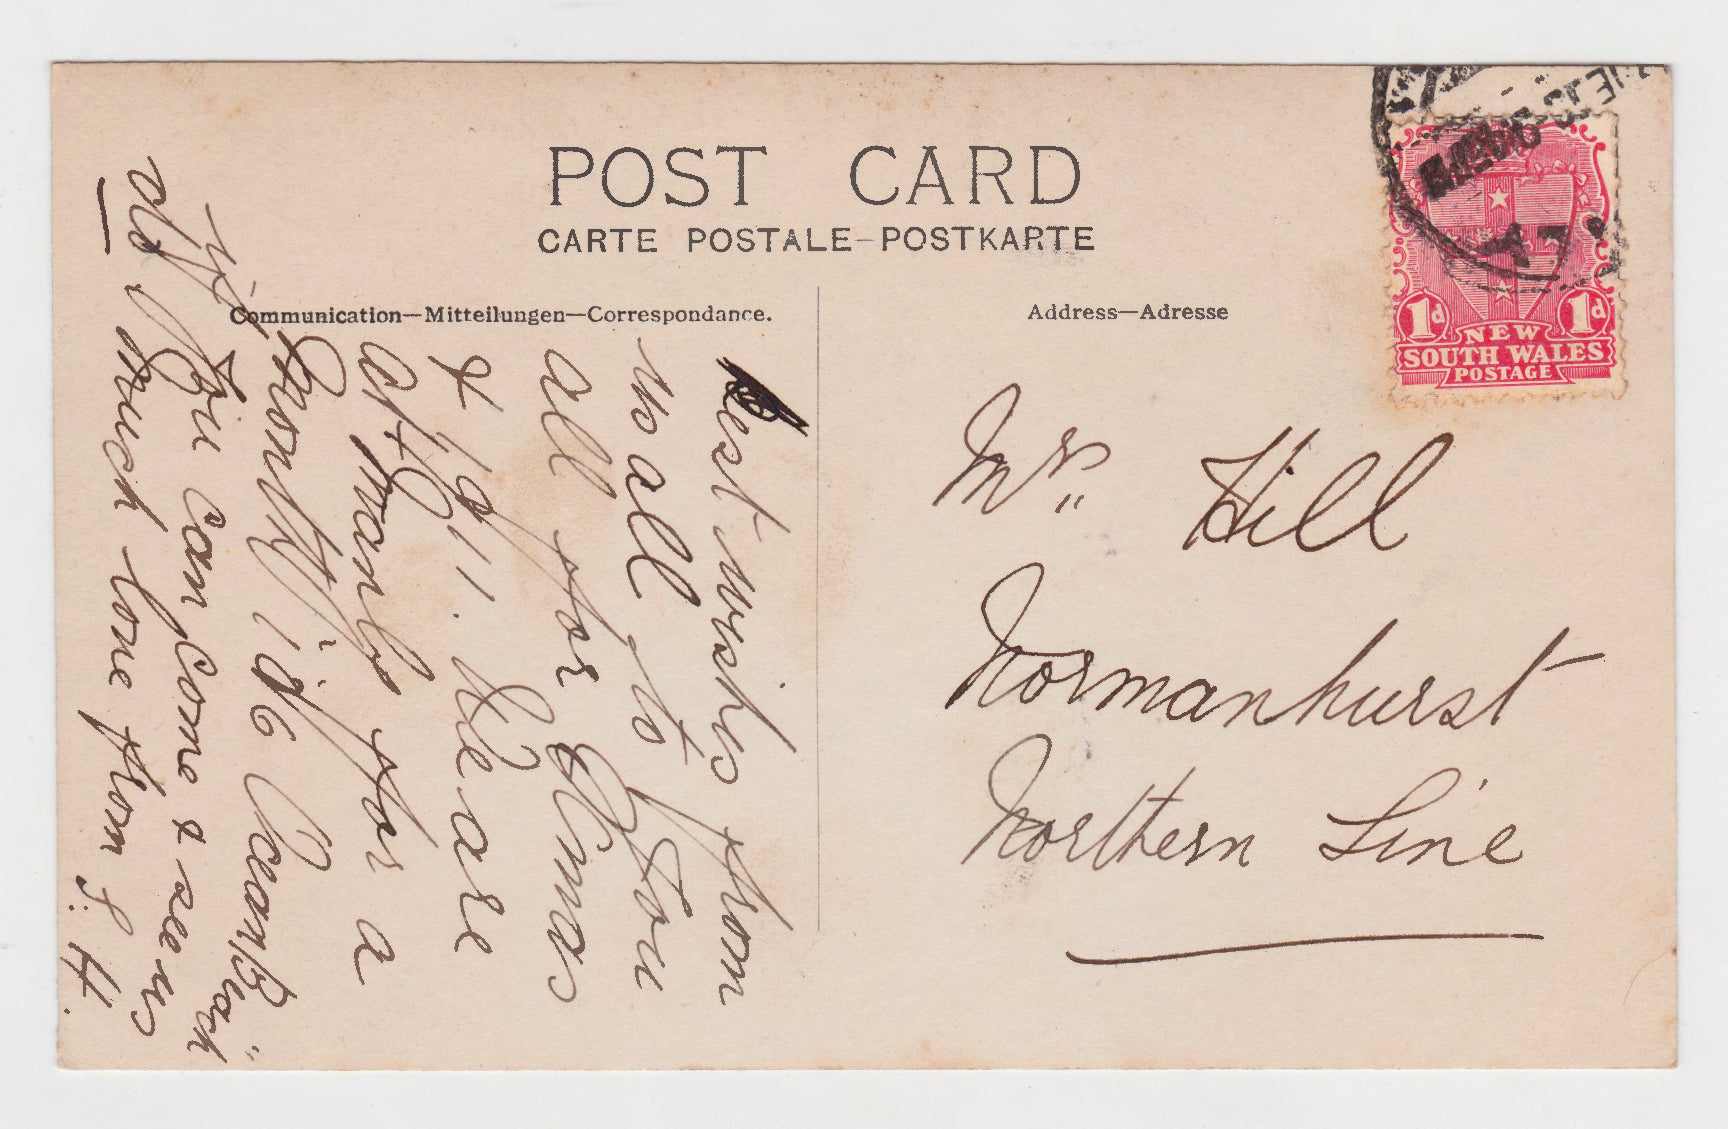 POST CARD
CARTE POSTALE-POSTKARTE
Communication—Mitteilungen—Correspondance.
Address—Adresse
1d 1d
NEW
SOUTH WALES
POSTAGE
Best wishes from
us all to You
all for Xmas
& 1911. We are
at Manly for a
Month, 186 Ocean Beach"
if You can Come & see us
do
Much love from S. H.
Mr. Hill
Normanhurst
Northern Line